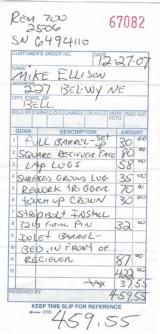 REM 700
2506
SN G4994110
67082
CUSTOMER'S ORDER NO.
DATE
12-27-07
NAME
MIKE ELLISON
ADDRESS
227 BELWYNE
CITY, STATE, ZIP
BELL.
SOLD BY CASH C.O.D. CHARGE ON ACCT.
QUAN. DESCRIPTION AMOUNT
1 FULL BARREL - SET UP 30 00
2 SQUARE RECIEVER FACE 80 00
3 LAP LUGS 55
4 SURFACES GROUND LUG 35 00
5 REWORK TRIGGER 70 00
6 TOUCH UP CROWN 30 00
7 STRIP BOLT INSTALL
8 FIRING PIN 32 00
9 INLET BARREL -
10 BED IN FRONT OF
11 RECIEVER 87 00
12 422 00
TAX 37.55
RECEIVED BY
459.55
KEEP THIS SLIP FOR REFERENCE
459.55